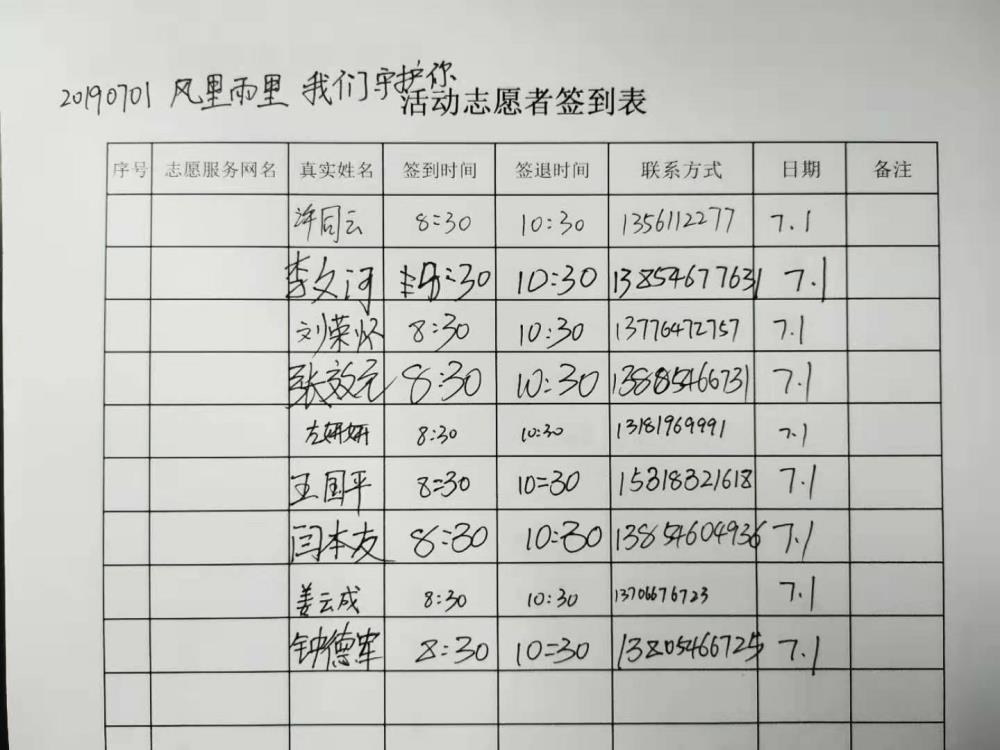 20190701 风里雨里 我们守护你
活动志愿者签到表
序号 志愿服务网名 真实姓名 签到时间 签退时间 联系方式 日期 备注
许同云 8:30 10:30 1356112277 7.1
李文河 8:30 10:30 13854677631 7.1
刘荣怀 8:30 10:30 13776472757 7.1
张效元 8:30 10:30 13885466731 7.1
左妍妍 8:30 10:30 13181969991 7.1
王国平 8:30 10:30 15318321618 7.1
闫本友 8:30 10:30 13854604936 7.1
姜云成 8:30 10:30 13706676723 7.1
钟德军 8:30 10:30 13805466725 7.1